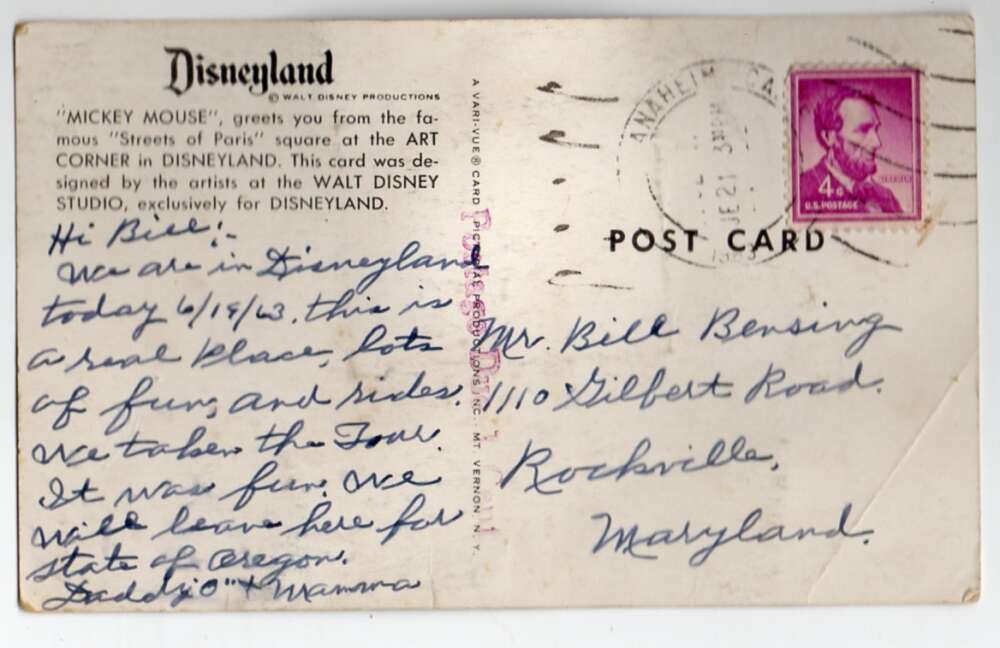 Disneyland
© WALT DISNEY PRODUCTIONS
"MICKEY MOUSE", greets you from the fa-
mous "Streets of Paris" square at the ART
CORNER in DISNEYLAND. This card was de-
signed by the artists at the WALT DISNEY
STUDIO, exclusively for DISNEYLAND.
Hi Bill:-
We are in Disneyland
today 6/19/63. this is
a real place, lots
of fun, and rides.
We taken the Tour.
It was fun. We
will leave here for
state of Oregon.
Daddy "O" + Mamma
A VARI-VUE® CARD PICTORIAL PRODUCTIONS INC. MT. VERNON N. Y.
Postage Due
ANAHEIM CA
PM
JE 21
1963
4¢
U.S. POSTAGE
POST CARD
Mr. Bill Bensing
1110 Gilbert Road.
Rockville,
Maryland.